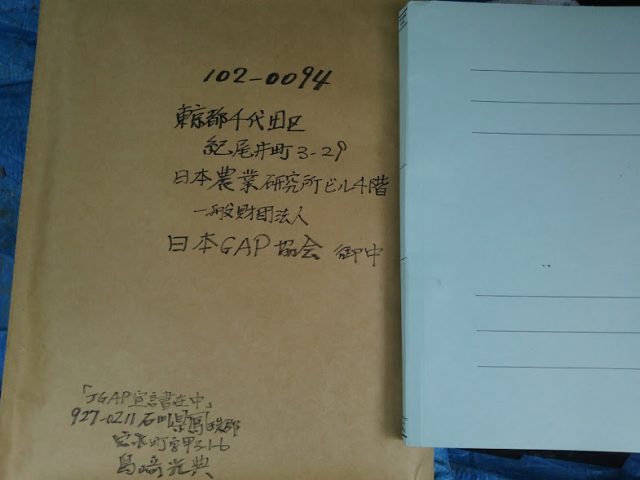 102-0094
東京都千代田区
紀尾井町3-29
日本農業研究所ビル4階
一般財団法人
日本GAP協会 御中
「JGAP宣言書在中」
927-0211 石川県鳳珠郡
穴水町字甲3-1-6
島崎光典